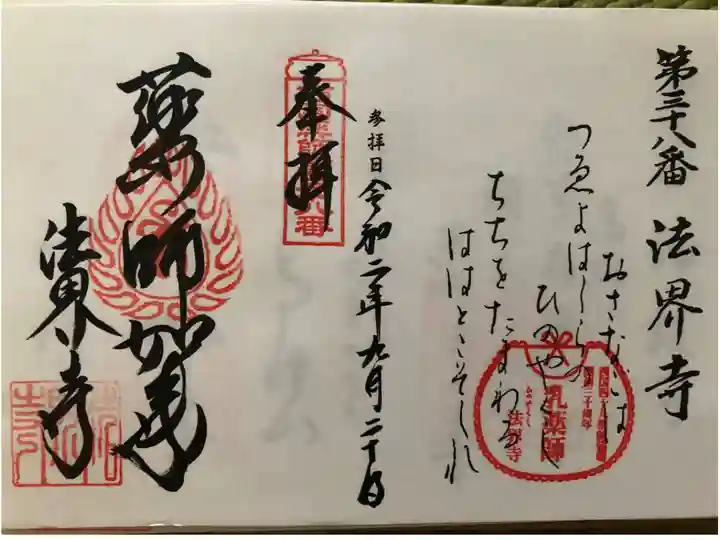 第三十八番 法界寺
おさな〳〵は
つゑよはしらの
ひのやくし
ちちをたまわる
ははとこそしれ
乳薬師
法界寺
参拝日 令和二年九月二十日
奉拝
薬師如来
法界寺